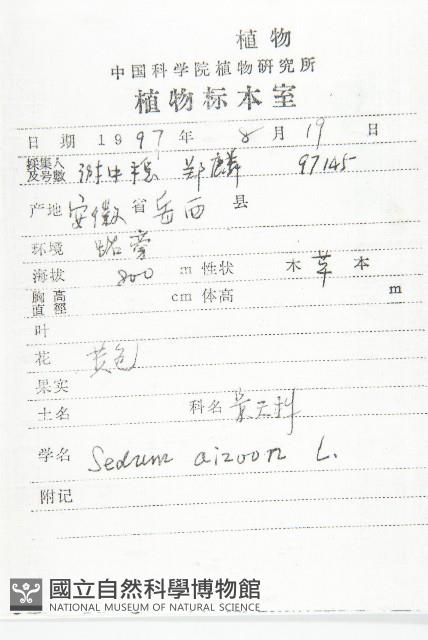 植物
中国科学院植物研究所
植物标本室
日 期 1997 年 8 月 19 日
採集人及号數 谢中稳 郑麟 97145
产地 安徽 省 岳西 县
环境 路旁
海拔 800 m 性状 木 草 本
胸高直徑 cm 体高 m
叶
花 黄色
果实
土名 科名 景天科
学名 Sedum aizoon L.
附记
國立自然科學博物館
NATIONAL MUSEUM OF NATURAL SCIENCE